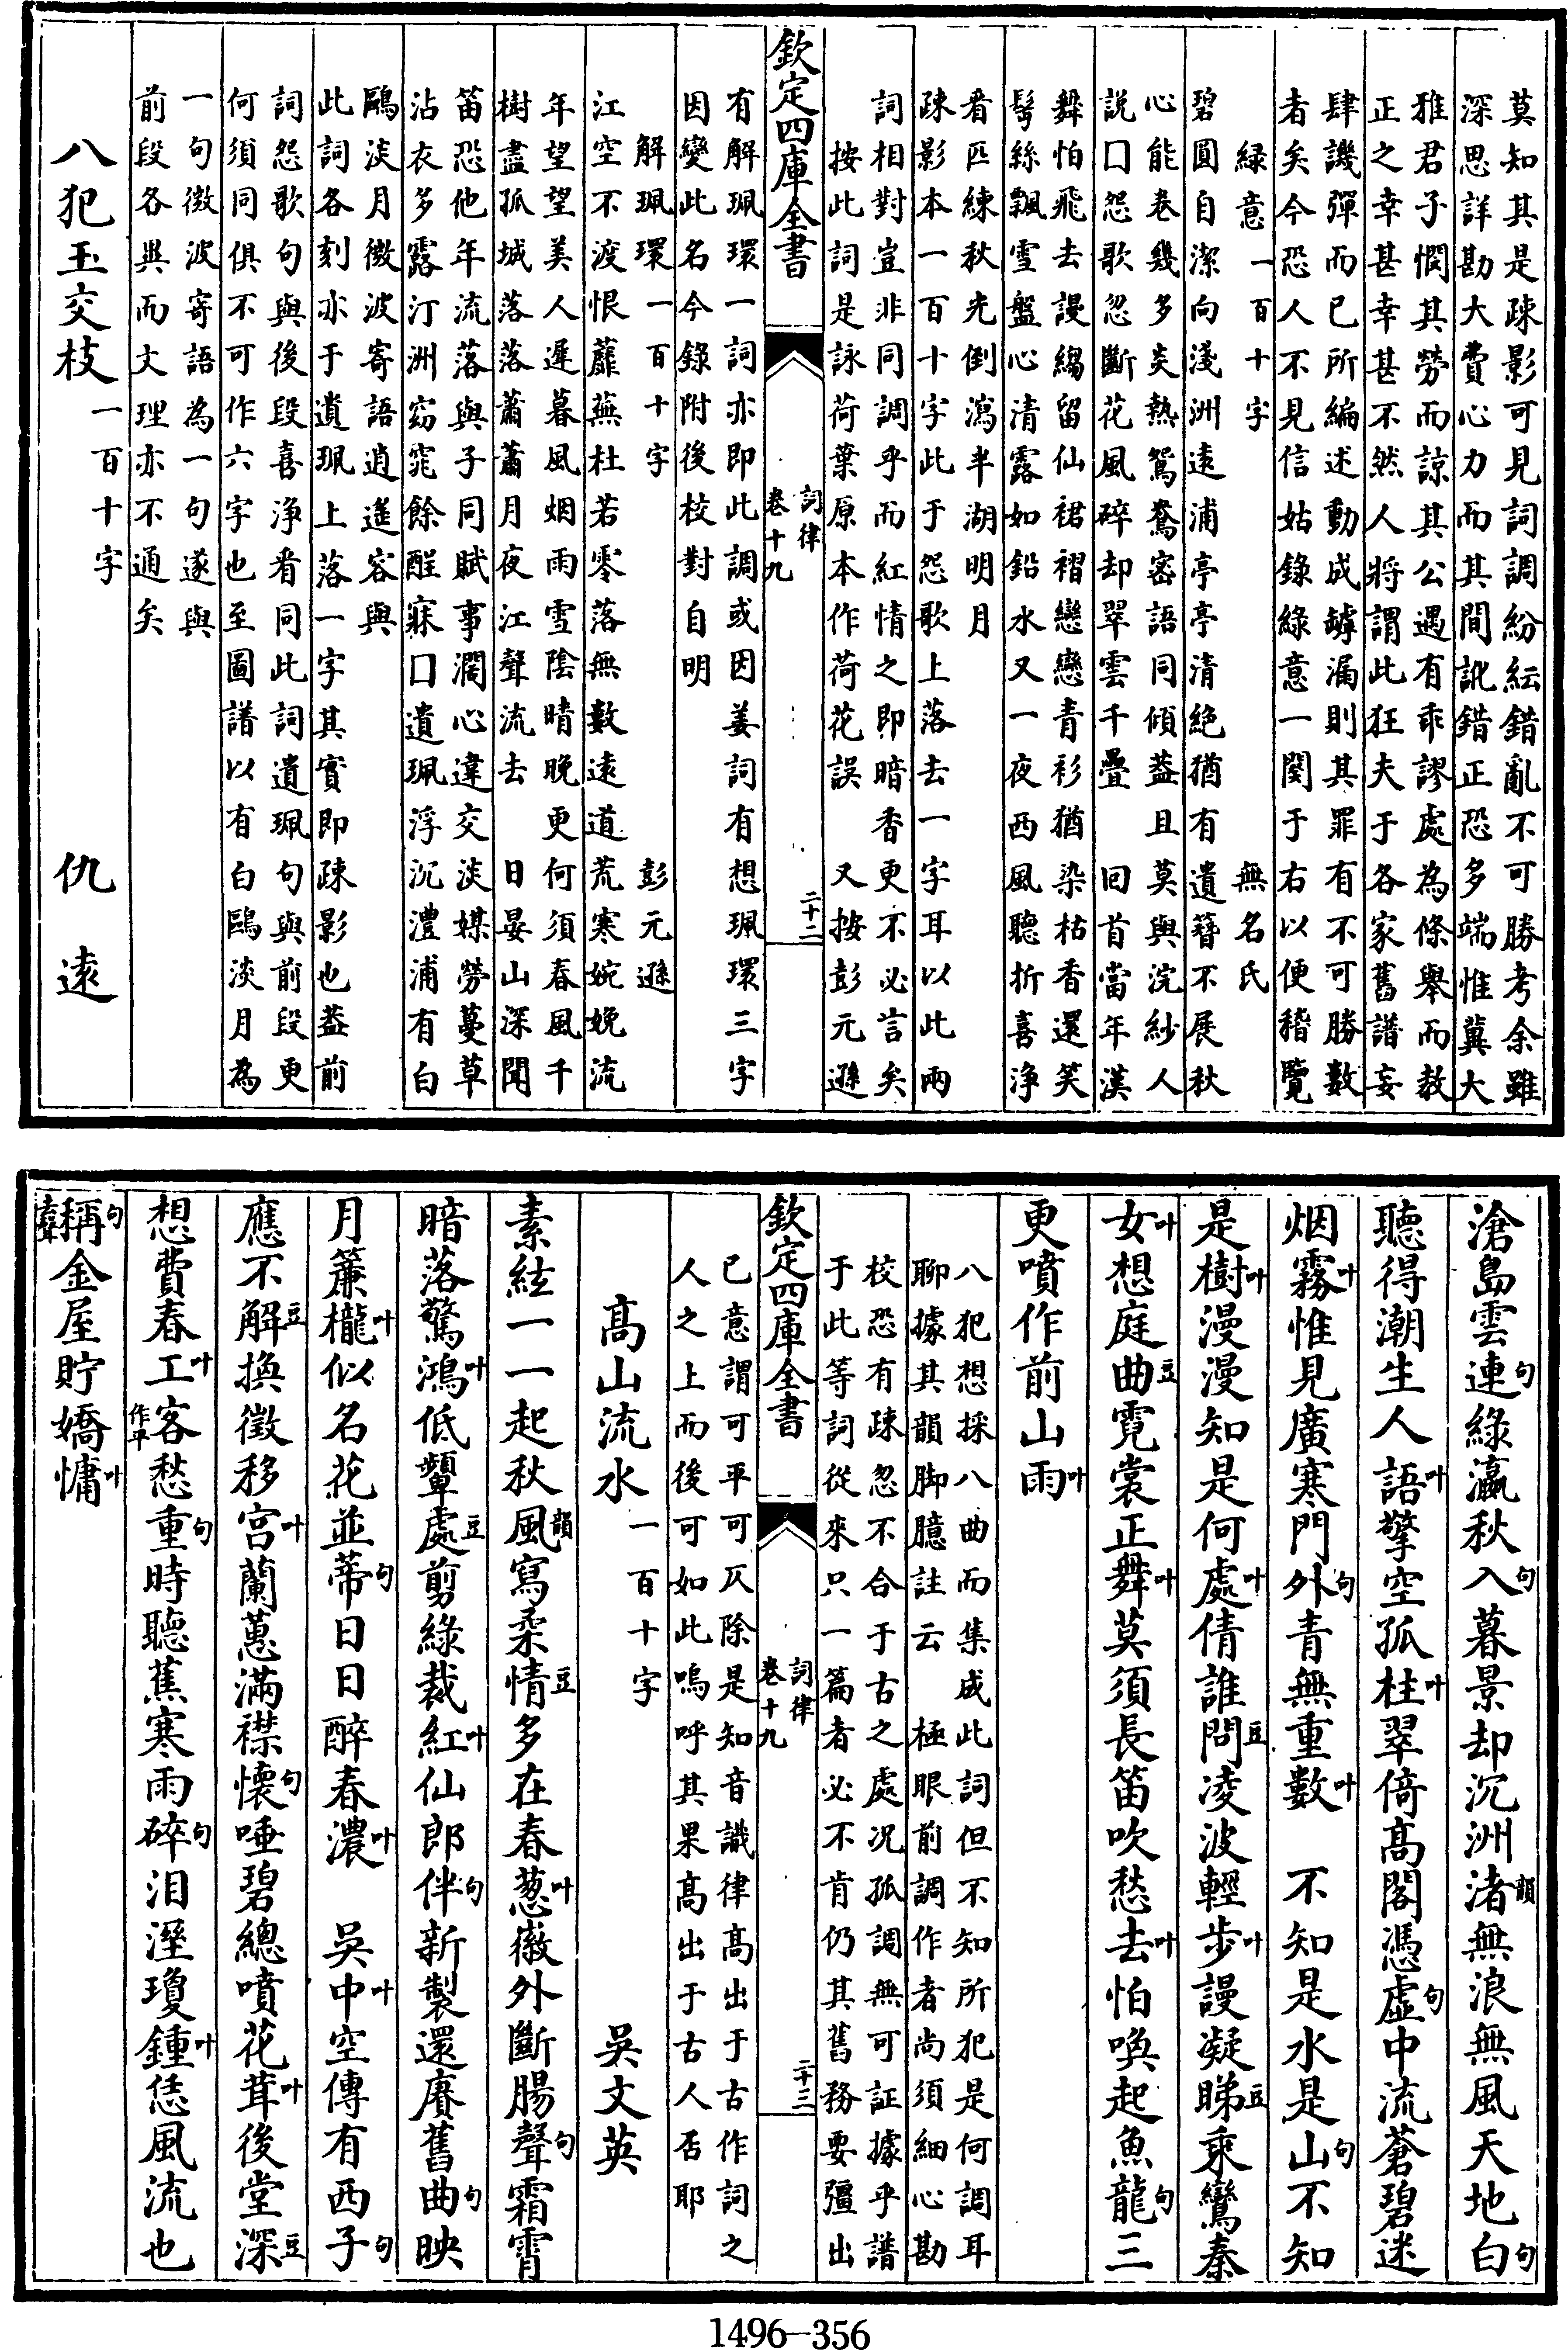 莫知其是疎影可見詞調紛紜錯亂不可勝考余雖
深思詳勘大費心力而其間訛錯正恐多端惟冀大
雅君子憫其勞而諒其公遇有乖謬處為條舉而教
正之幸甚幸甚不然人將謂此狂夫于各家舊譜妄
肆譏彈而已所編述動成罅漏則其罪有不可勝數
者矣今恐人不見信姑錄綠意一闋于右以便稽覽
綠意一百十字 無名氏
碧圓自潔向淺洲遠浦亭亭清絶猶有遺簪不展秋
心能卷幾多炎熱鴛鴦密語同傾葢且莫與浣紗人
說囗怨歌忽斷花風碎却翠雲千疊 回首當年漢
舞怕飛去謾縐留仙裙褶戀戀青衫猶染枯香還笑
髩絲飄雪盤心清露如鉛水又一夜西風聽折喜淨
看匹練秋光倒瀉半湖明月
疎影本一百十字此于怨歌上落去一字耳以此兩
詞相對豈非同調乎而紅情之即暗香更不必言矣
按此詞是詠荷葉原本作荷花誤 又按彭元遜
欽定四庫全書 詞律 卷十九 二十二
有解珮環一詞亦即此調或因姜詞有想珮環三字
因變此名今錄附後校對自明
解珮環一百十字 彭元遜
江空不渡恨蘼蕪杜若零落無數遠道荒寒婉娩流
年望望美人遲暮風烟雨雪陰晴晚更何須春風千
樹盡孤城落落蕭蕭月夜江聲流去 日晏山深聞
笛恐他年流落與子同賦事濶心違交淡媒勞蔓草
沾衣多露汀洲窈窕餘酲寐囗遺珮浮沉澧浦有白
鷗淡月微波寄語逍遙容與
此詞各刻亦于遺珮上落一字其實即疎影也葢前
詞怨歌句與後段喜淨看同此詞遺珮句與前段更
何須同俱不可作六字也至圖譜以有白鷗淡月為
一句微波寄語為一句遂與
前段各異而文理亦不通矣
八犯玉交枝一百十字 仇遠
滄島雲連句綠瀛秋入句暮景却沉洲渚韻無浪無風天地白句
聽得潮生人語叶擎空孤柱叶翠倚高閣憑虛句中流蒼碧迷
烟霧叶惟見廣寒門外句青無重數叶 不知是水是山句不知
是樹叶漫漫知是何處叶倩誰問豆凌波輕步叶謾凝睇豆乘鸞秦
女叶想庭曲豆霓裳正舞叶莫須長笛吹愁去叶怕喚起魚龍句三
更噴作前山雨叶
八犯想採八曲而集成此詞但不知所犯是何調耳
聊據其韻脚臆註云 極眼前調作者尚須細心勘
校恐有疎忽不合于古之處况孤調無可証據乎譜
于此等詞從來只一篇者必不肯仍其舊務要彊出
欽定四庫全書 詞律 卷十九 二十三
已意謂可平可仄除是知音識律高出于古作詞之
人之上而後可如此嗚呼其果高出于古人否耶
高山流水一百十字 吳文英
素絃一一起秋風韻寫柔情豆多在春葱叶徽外斷腸聲句霜霄
暗落驚鴻叶低顰處豆剪綠裁紅叶仙郎伴句新製還賡舊曲句映
月簾櫳叶似名花並蒂句日日醉春濃叶 吳中叶空傳有西子句
應不解豆換徵移宮叶蘭蕙滿襟懷句唾碧總噴花茸叶後堂深豆
想費春工叶客作平愁重句時聽蕉寒雨碎句泪溼瓊鍾叶恁風流也
句稱去聲金屋貯嬌慵叶
1496—356